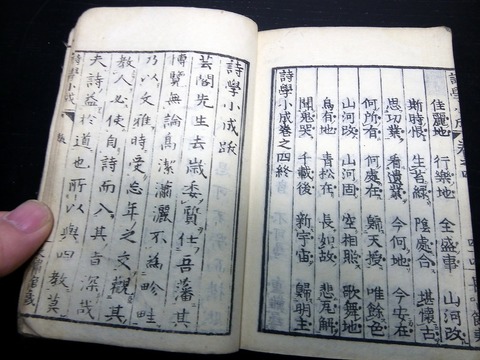 詩學小成 卷之四
佳麗地 行樂地 全盛事 山河改
斯時恨 生苔緑 陰處合 堪懷古
思功業 看遺業 今何地 今安在
何所有 何處在 歸天授 唯餘色
山河改 山河固 空相 歌舞地
烏有地 青松在 長如故 悲
聞鬼哭 千載後 新宇宙 歸明主
詩學小成卷之四終
詩學小成跋
芸閣先生去歳委質仕吾藩其
博覽無論爲潔瀟灑不爲畛畦
乃以文雅時受忘年之交觀其
教人必使自詩而入其旨深哉
夫詩益於道也所以與四教莫
詩學小成 跋